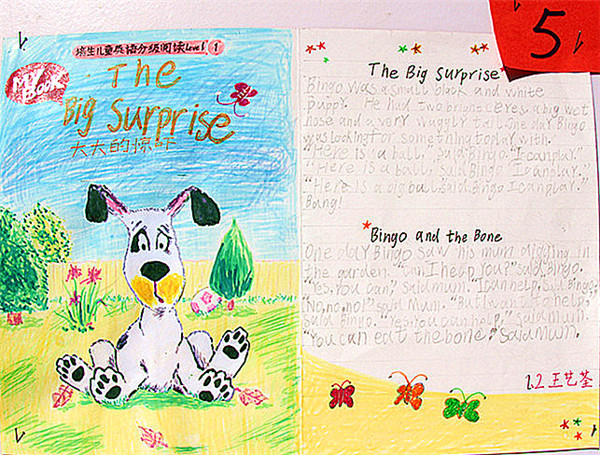 培生儿童英语分级阅读Level 1
MY BOOK
The
Big Surprise
大大的惊讶
5
The Big Surprise
Bingo was a small black and white
puppy. He had two brune eyes, a big wet
nose and a very waggly tail. One day Bingo
was looking for something to play with.
"Here is a ball, said Bingo. I can play."
"Here is a ball, said Bingo. I can play.
"Here is a big ball, said Bingo I can play."
Bang!
Bingo and the Bone
One day Bingo saw his mum digging in
the garden. "Can I help you?" said Bingo.
"Yes, You can," said Mum. "I can help, said Bingo.
"No, no, no!" said Mum. help,
said Bingo. "Yes, you can help," said Mum.
"You can eat the bone," said Mum.
1.2 王艺荃